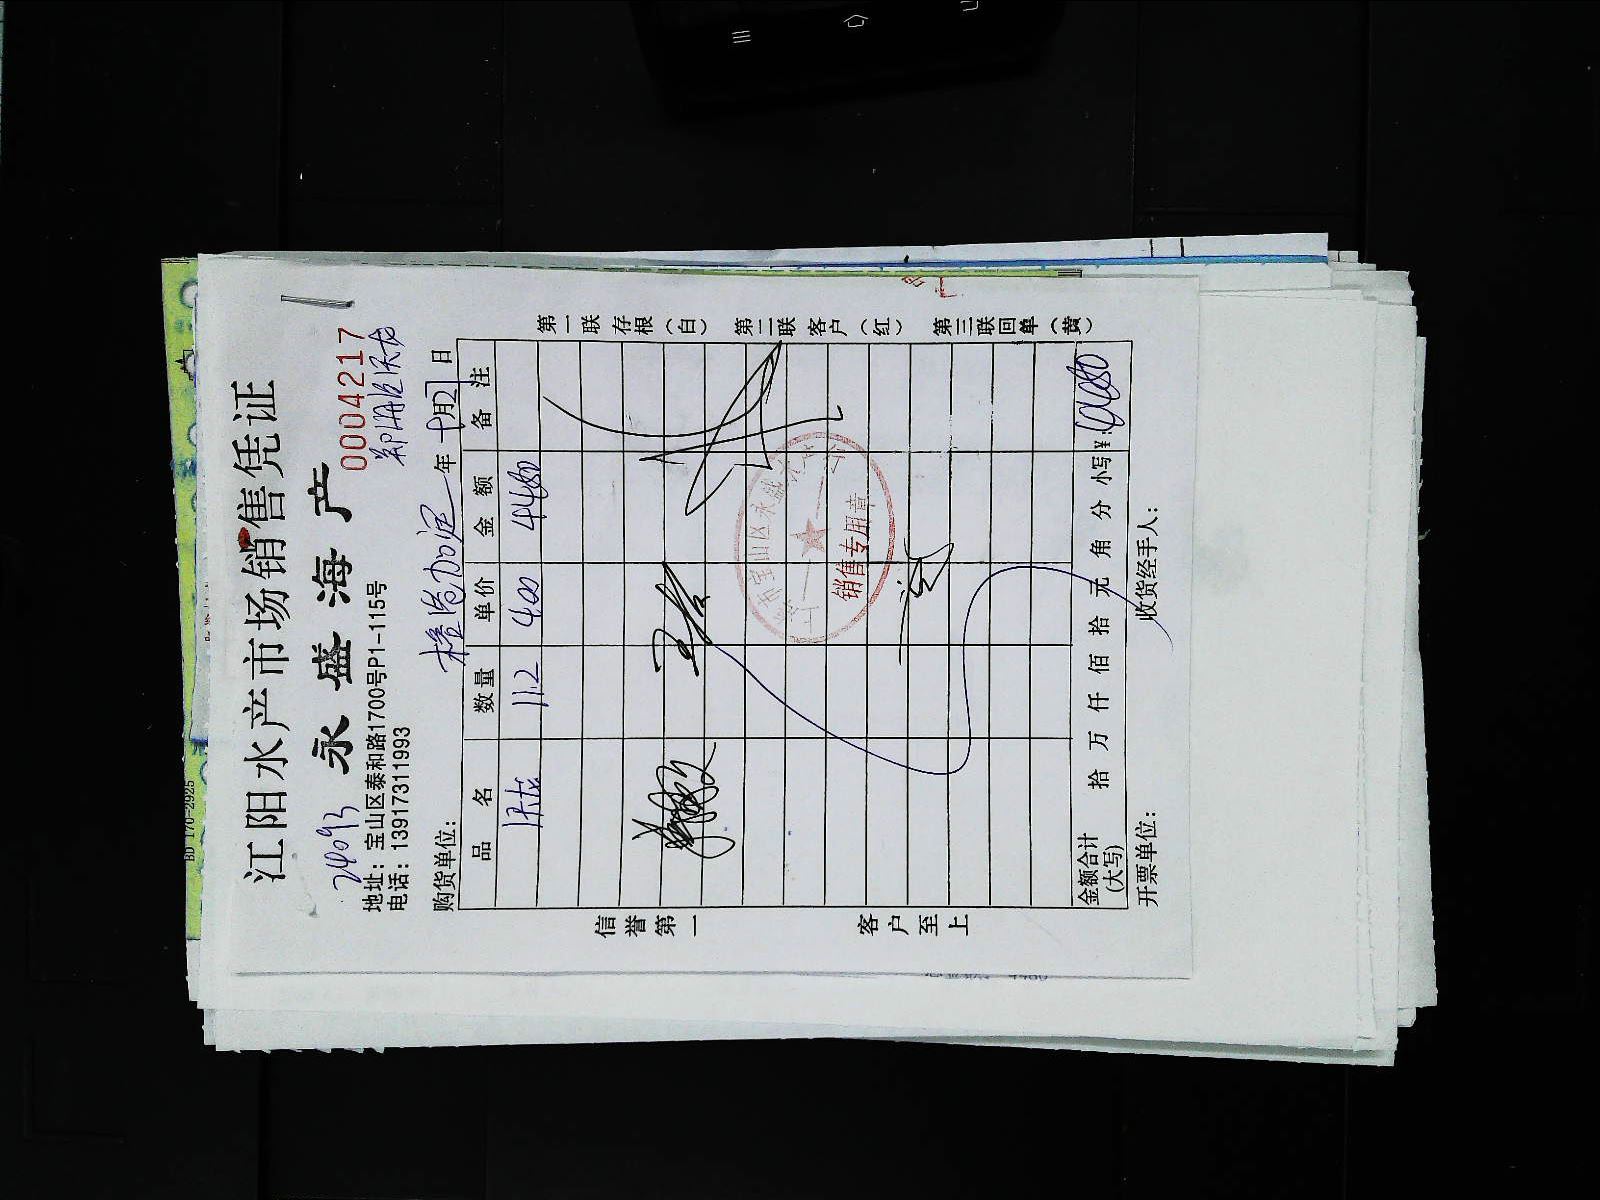 江阳水产市场销售凭证
永盛海产
0004217
地址：宝山区泰和路1700号P1-115号
电话：13917311993
购货单位： 年 月 日
品名 数量 单价 金额 备注
11.2 400 4480
信誉第一 客户至上
第一联存根（白） 第二联客户（红） 第三联回单（黄）
销售专用章
金额合计（大写） 拾 万 仟 佰 拾 元 角 分 小写¥：4480
开票单位： 收货经手人：
BD 170-2925